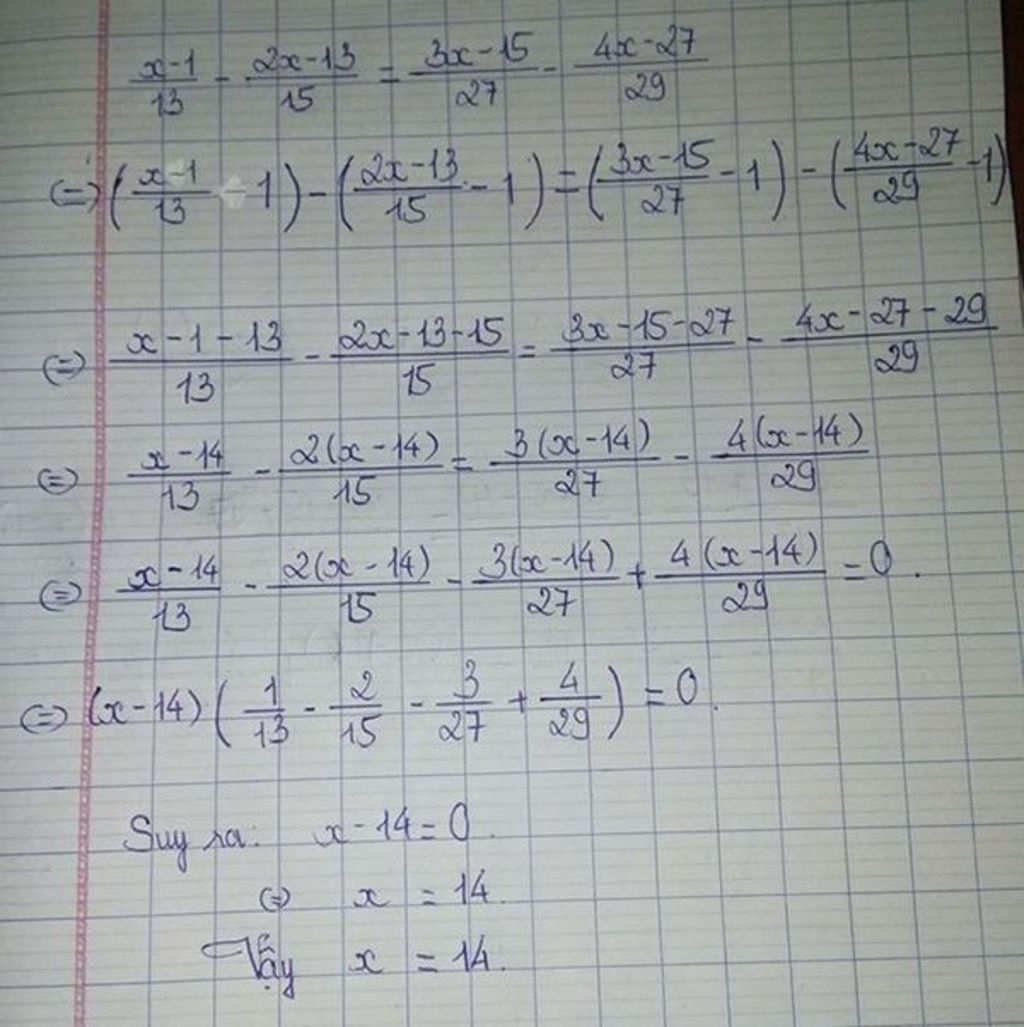 x-1/13 - 2x-13/15 = 3x-15/27 - 4x-27/29
(=) (x-1/13 - 1) - (2x-13/15 - 1) = (3x-15/27 - 1) - (4x-27/29 - 1)
(=) x-1-13/13 - 2x-13-15/15 = 3x-15-27/27 - 4x-27-29/29
(=) x-14/13 - 2(x-14)/15 = 3(x-14)/27 - 4(x-14)/29
(=) x-14/13 - 2(x-14)/15 - 3(x-14)/27 + 4(x-14)/29 = 0.
(=) (x-14) (1/13 - 2/15 - 3/27 + 4/29) = 0.
Suy ra: x-14 = 0.
(=) x = 14.
Vậy x = 14.